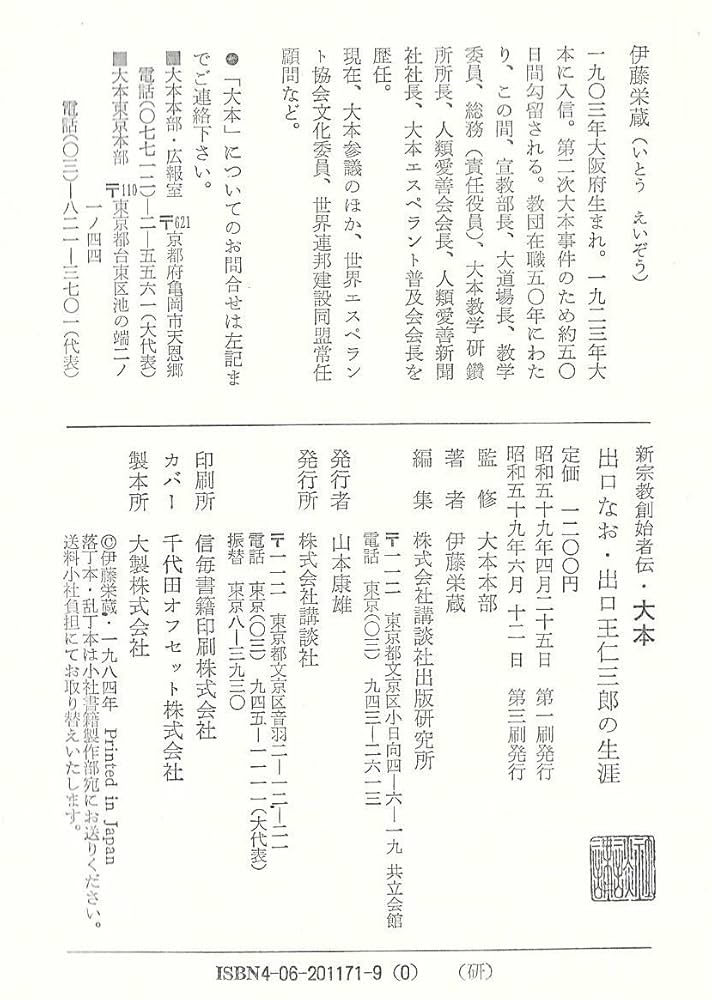 伊藤栄蔵（いとう えいぞう）
一九〇三年大阪府生まれ。一九二三年大
本に入信。第二次大本事件のため約五〇
日間勾留される。教団在職五〇年にわた
り、この間、宣教部長、大道場長、教学
委員、総務（責任役員）、大本教学研鑽
所所長、人類愛善会会長、人類愛善新聞
社社長、大本エスペラント普及会会長を
歴任。
現在、大本参議のほか、世界エスペラン
ト協会文化委員、世界連邦建設同盟常任
顧問など。
●「大本」についてのお問合せは左記ま
でご連絡下さい。
■大本本部・広報室 〒621京都府亀岡市天恩郷
電話（〇七七一二）―二―五五六一（大代表）
■大本東京本部 〒110東京都台東区池の端二ノ
一ノ四四
電話（〇三）―八二一―三七〇一（代表）
新宗教創始者伝・大本
出口なお・出口王仁三郎の生涯
定価 一二〇〇円
昭和五十九年四月二十五日 第一刷発行
昭和五十九年六月十二日 第三刷発行
監修 大本本部
著者 伊藤栄蔵
編集 株式会社講談社出版研究所
〒一一二 東京都文京区小日向四―六―一九 共立会館
電話 東京（〇三） 九四三―二六一三
発行者 山本康雄
発行所 株式会社講談社
〒一一二 東京都文京区音羽二―一二―二一
電話 東京（〇三） 九四五―一一一一（大代表）
振替 東京八―三九三〇
印刷所 信毎書籍印刷株式会社
カバー 千代田オフセット株式会社
製本所 大製株式会社
©伊藤栄蔵・一九八四年 Printed in Japan
落丁本・乱丁本は小社書籍製作部宛にお送りください。
送料小社負担にてお取り替えいたします。
講談社
ISBN4-06-201171-9 (0) （研）